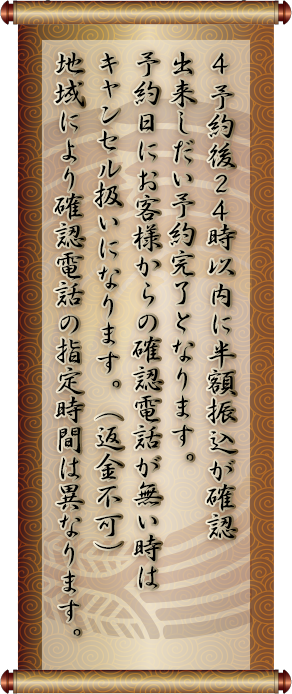 ４予約後２４時以内に半額振込が確認
出来しだい予約完了となります。
予約日にお客様からの確認電話が無い時は
キャンセル扱いになります。（返金不可）
地域により確認電話の指定時間は異なります。